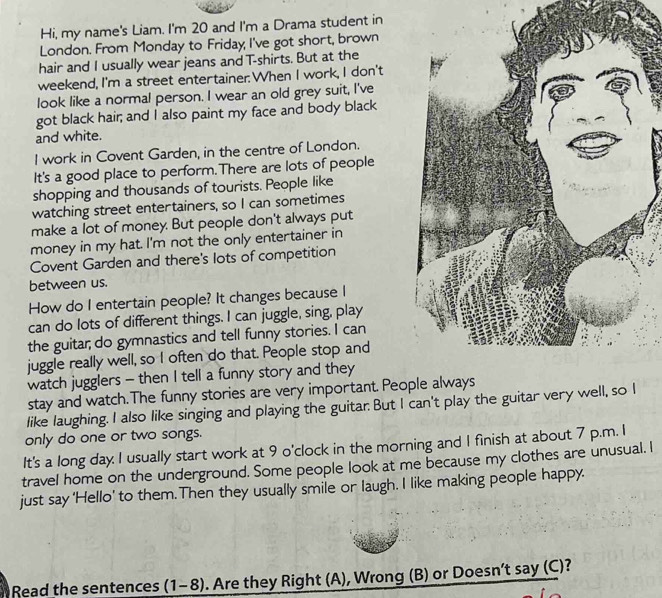 Hi, my name's Liam. I'm 20 and I'm a Drama student in
London. From Monday to Friday, I've got short, brown
hair and I usually wear jeans and T-shirts. But at the
weekend, I'm a street entertainer. When I work, I don't
look like a normal person. I wear an old grey suit, I've
got black hair, and I also paint my face and body black
and white.
I work in Covent Garden, in the centre of London.
It's a good place to perform. There are lots of people
shopping and thousands of tourists. People like
watching street entertainers, so I can sometimes
make a lot of money. But people don't always put
money in my hat. I'm not the only entertainer in
Covent Garden and there's lots of competition
between us.
How do I entertain people? It changes because I
can do lots of different things. I can juggle, sing, play
the guitar, do gymnastics and tell funny stories. I can
juggle really well, so I often do that. People stop and
watch jugglers – then I tell a funny story and they
stay and watch. The funny stories are very important. People always
like laughing. I also like singing and playing the guitar. But I can't play the guitar very well, so I
only do one or two songs.
It's a long day. I usually start work at 9 o'clock in the morning and I finish at about 7 p.m. I
travel home on the underground. Some people look at me because my clothes are unusual. I
just say 'Hello' to them. Then they usually smile or laugh. I like making people happy.
Read the sentences (1–8). Are they Right (A), Wrong (B) or Doesn't say (C)?